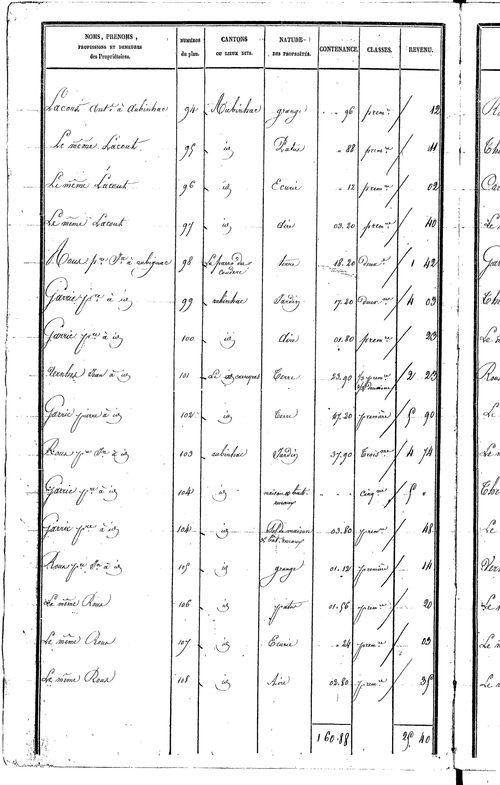 NOMS, PRÉNOMS, PROFESSIONS ET DEMEURES des Propriétaires. NUMÉROS du plan. CANTONS OU LIEUX DITS. NATURE DES PROPRIÉTÉS. CONTENANCE. CLASSES. REVENU.
Lacout Ant.ne à Aubinhac 94 Aubinhac grange 96 prem.re 12
Le même Lacout 95 id Patus 88 prem.re 11
Le même Lacout 96 id Ecurie 12 prem.re 02
Le même Lacout 97 id aire 03.20 prem.re 40
Roux p.re à aubignac 98 terre 18.20 Deux.me 1 42
Garric p.re à id 99 aubinhac Jardin 17.20 Deux.me 4 03
Garric p.re à id 100 id aire 01.80 prem.re 23
Jean à id 101 Terre 23.90 2 23
Garric pierre à id 102 id Terre 47.20 première 5 90
Roux p.re à id 103 aubinhac Jardin 37.90 Trois.me 4 74
Garric p.re à id 104 id maison & bat. ruraux cinq.me 5 "
Garric p.re à id 104 id Sol de maison & bat. ruraux 03.80 prem.re 48
Roux p.re à id 105 id grange 01.12 première 14
Le même Roux 106 id patus 01.56 prem.re 20
Le même Roux 107 id Ecurie 24 prem.re 03
Le même Roux 108 id Aire 02.80 prem.re 35
1 60.88 25. 40